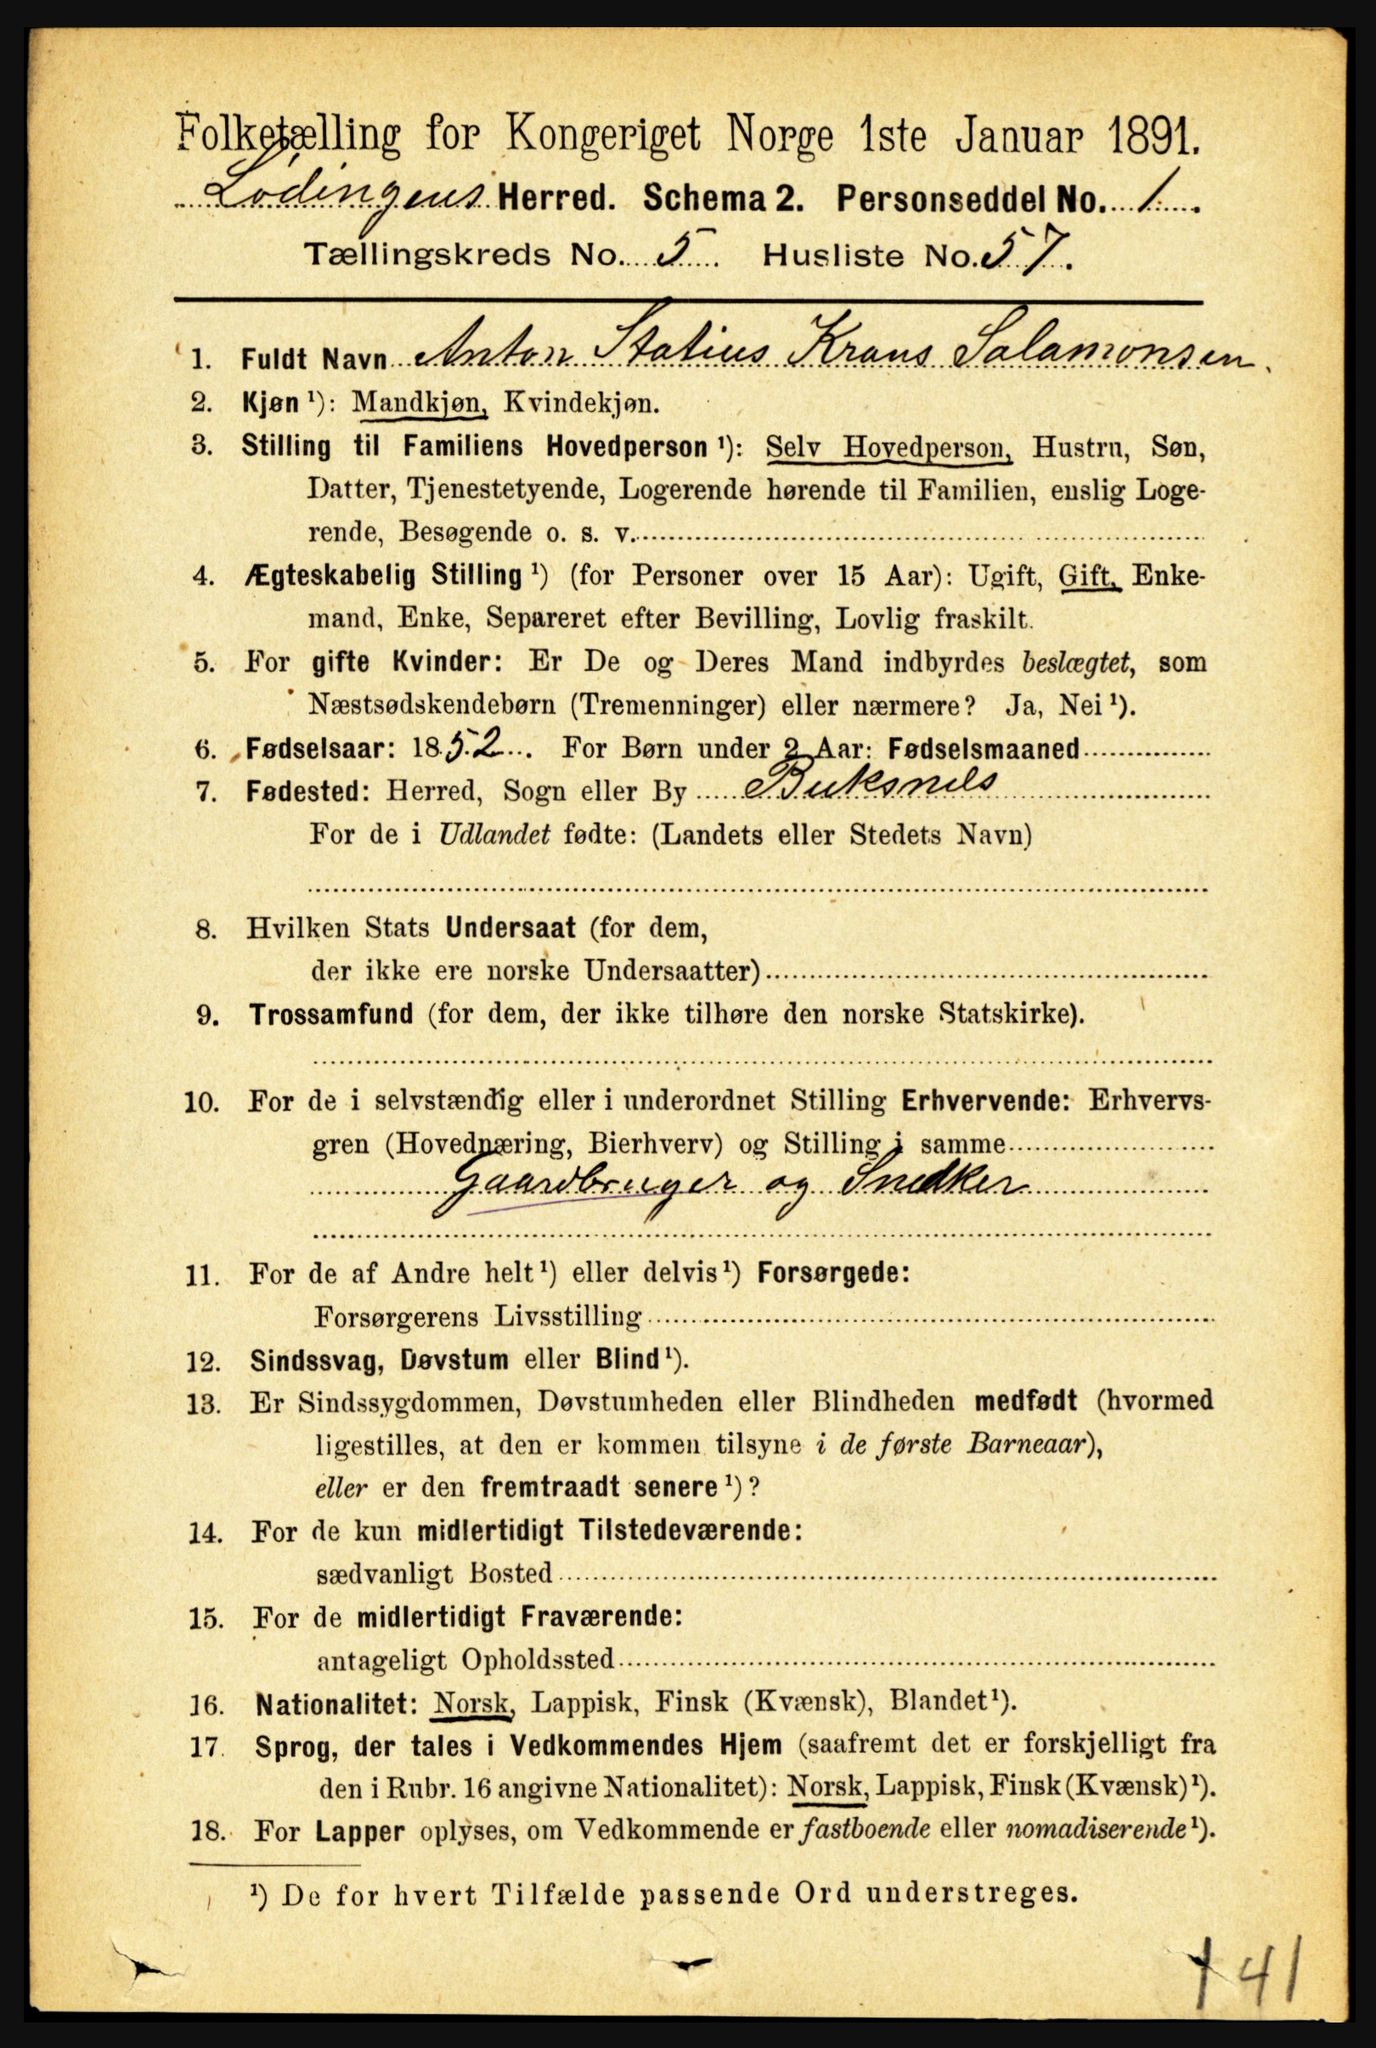 Folketælling for Kongeriget Norge 1ste Januar 1891.
Lødingens Herred. Schema 2. Personseddel No. 1.
Tællingskreds No. 5. Husliste No. 57.
1. Fuldt Navn Anton Statius Kraus Salamonsen.
2. Kjøn ¹): Mandkjøn, Kvindekjøn.
3. Stilling til Familiens Hovedperson ¹): Selv Hovedperson, Hustru, Søn,
Datter, Tjenestetyende, Logerende hørende til Familien, enslig Loge-
rende, Besøgende o. s. v.
4. Ægteskabelig Stilling ¹) (for Personer over 15 Aar): Ugift, Gift, Enke-
mand, Enke, Separeret efter Bevilling, Lovlig fraskilt.
5. For gifte Kvinder: Er De og Deres Mand indbyrdes beslægtet, som
Næstsødskendebørn (Tremenninger) eller nærmere? Ja, Nei ¹).
6. Fødselsaar: 1852. For Børn under 2 Aar: Fødselsmaaned
7. Fødested: Herred, Sogn eller By Buksnes
For de i Udlandet fødte: (Landets eller Stedets Navn)
8. Hvilken Stats Undersaat (for dem,
der ikke ere norske Undersaatter)
9. Trossamfund (for dem, der ikke tilhøre den norske Statskirke).
10. For de i selvstændig eller i underordnet Stilling Erhvervende: Erhvervs-
gren (Hovednæring, Bierhverv) og Stilling i samme
Gaardbruger og Snedker
11. For de af Andre helt ¹) eller delvis ¹) Forsørgede:
Forsørgerens Livsstilling
12. Sindssvag, Døvstum eller Blind ¹).
13. Er Sindssygdommen, Døvstumheden eller Blindheden medfødt (hvormed
ligestilles, at den er kommen tilsyne i de første Barneaar),
eller er den fremtraadt senere ¹)?
14. For de kun midlertidigt Tilstedeværende:
sædvanligt Bosted
15. For de midlertidigt Fraværende:
antageligt Opholdssted
16. Nationalitet: Norsk, Lappisk, Finsk (Kvænsk), Blandet ¹).
17. Sprog, der tales i Vedkommendes Hjem (saafremt det er forskjelligt fra
den i Rubr. 16 angivne Nationalitet): Norsk, Lappisk, Finsk (Kvænsk) ¹).
18. For Lapper oplyses, om Vedkommende er fastboende eller nomadiserende ¹).
¹) De for hvert Tilfælde passende Ord understreges.
141